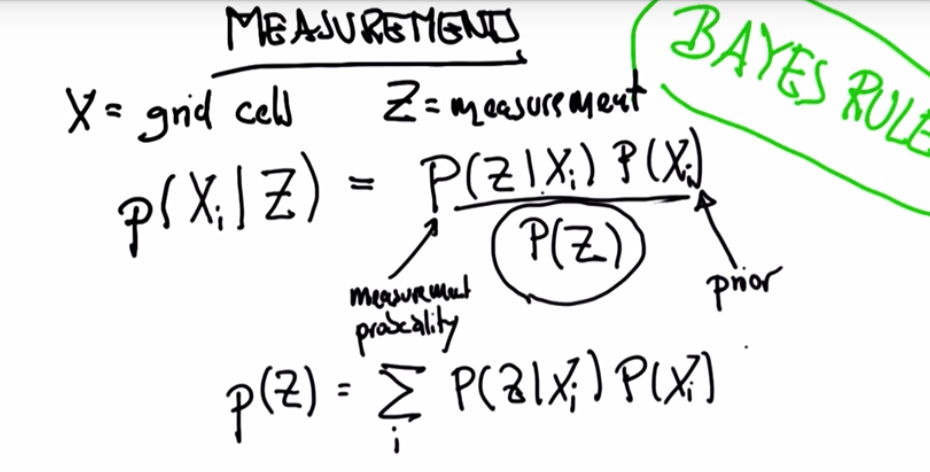 MEASUREMENT
BAYES RULE
X = grid cell Z = measurement
p(Xi|Z) = P(Z|Xi) P(Xi)
P(Z)
measurement
probability
prior
p(Z) = ∑i P(Z|Xi) P(Xi)